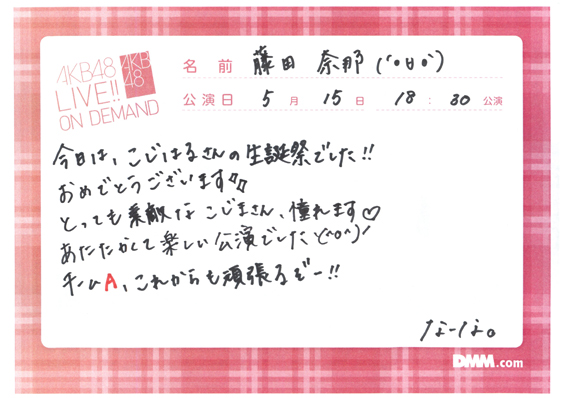 AKB48
LIVE!!
ON DEMAND
AKB
48
名前 藤田 奈那(*´∀`)
公演日 5月 15日 18:30公演
今日は、こじはるさんの生誕祭でした!!
おめでとうございます♪♪
とっても素敵な こじまさん、憧れます♡
あたたかくて楽しい公演でした(^o^)/
チームA、これからも頑張るぞー!!
なーな。
DMM.com